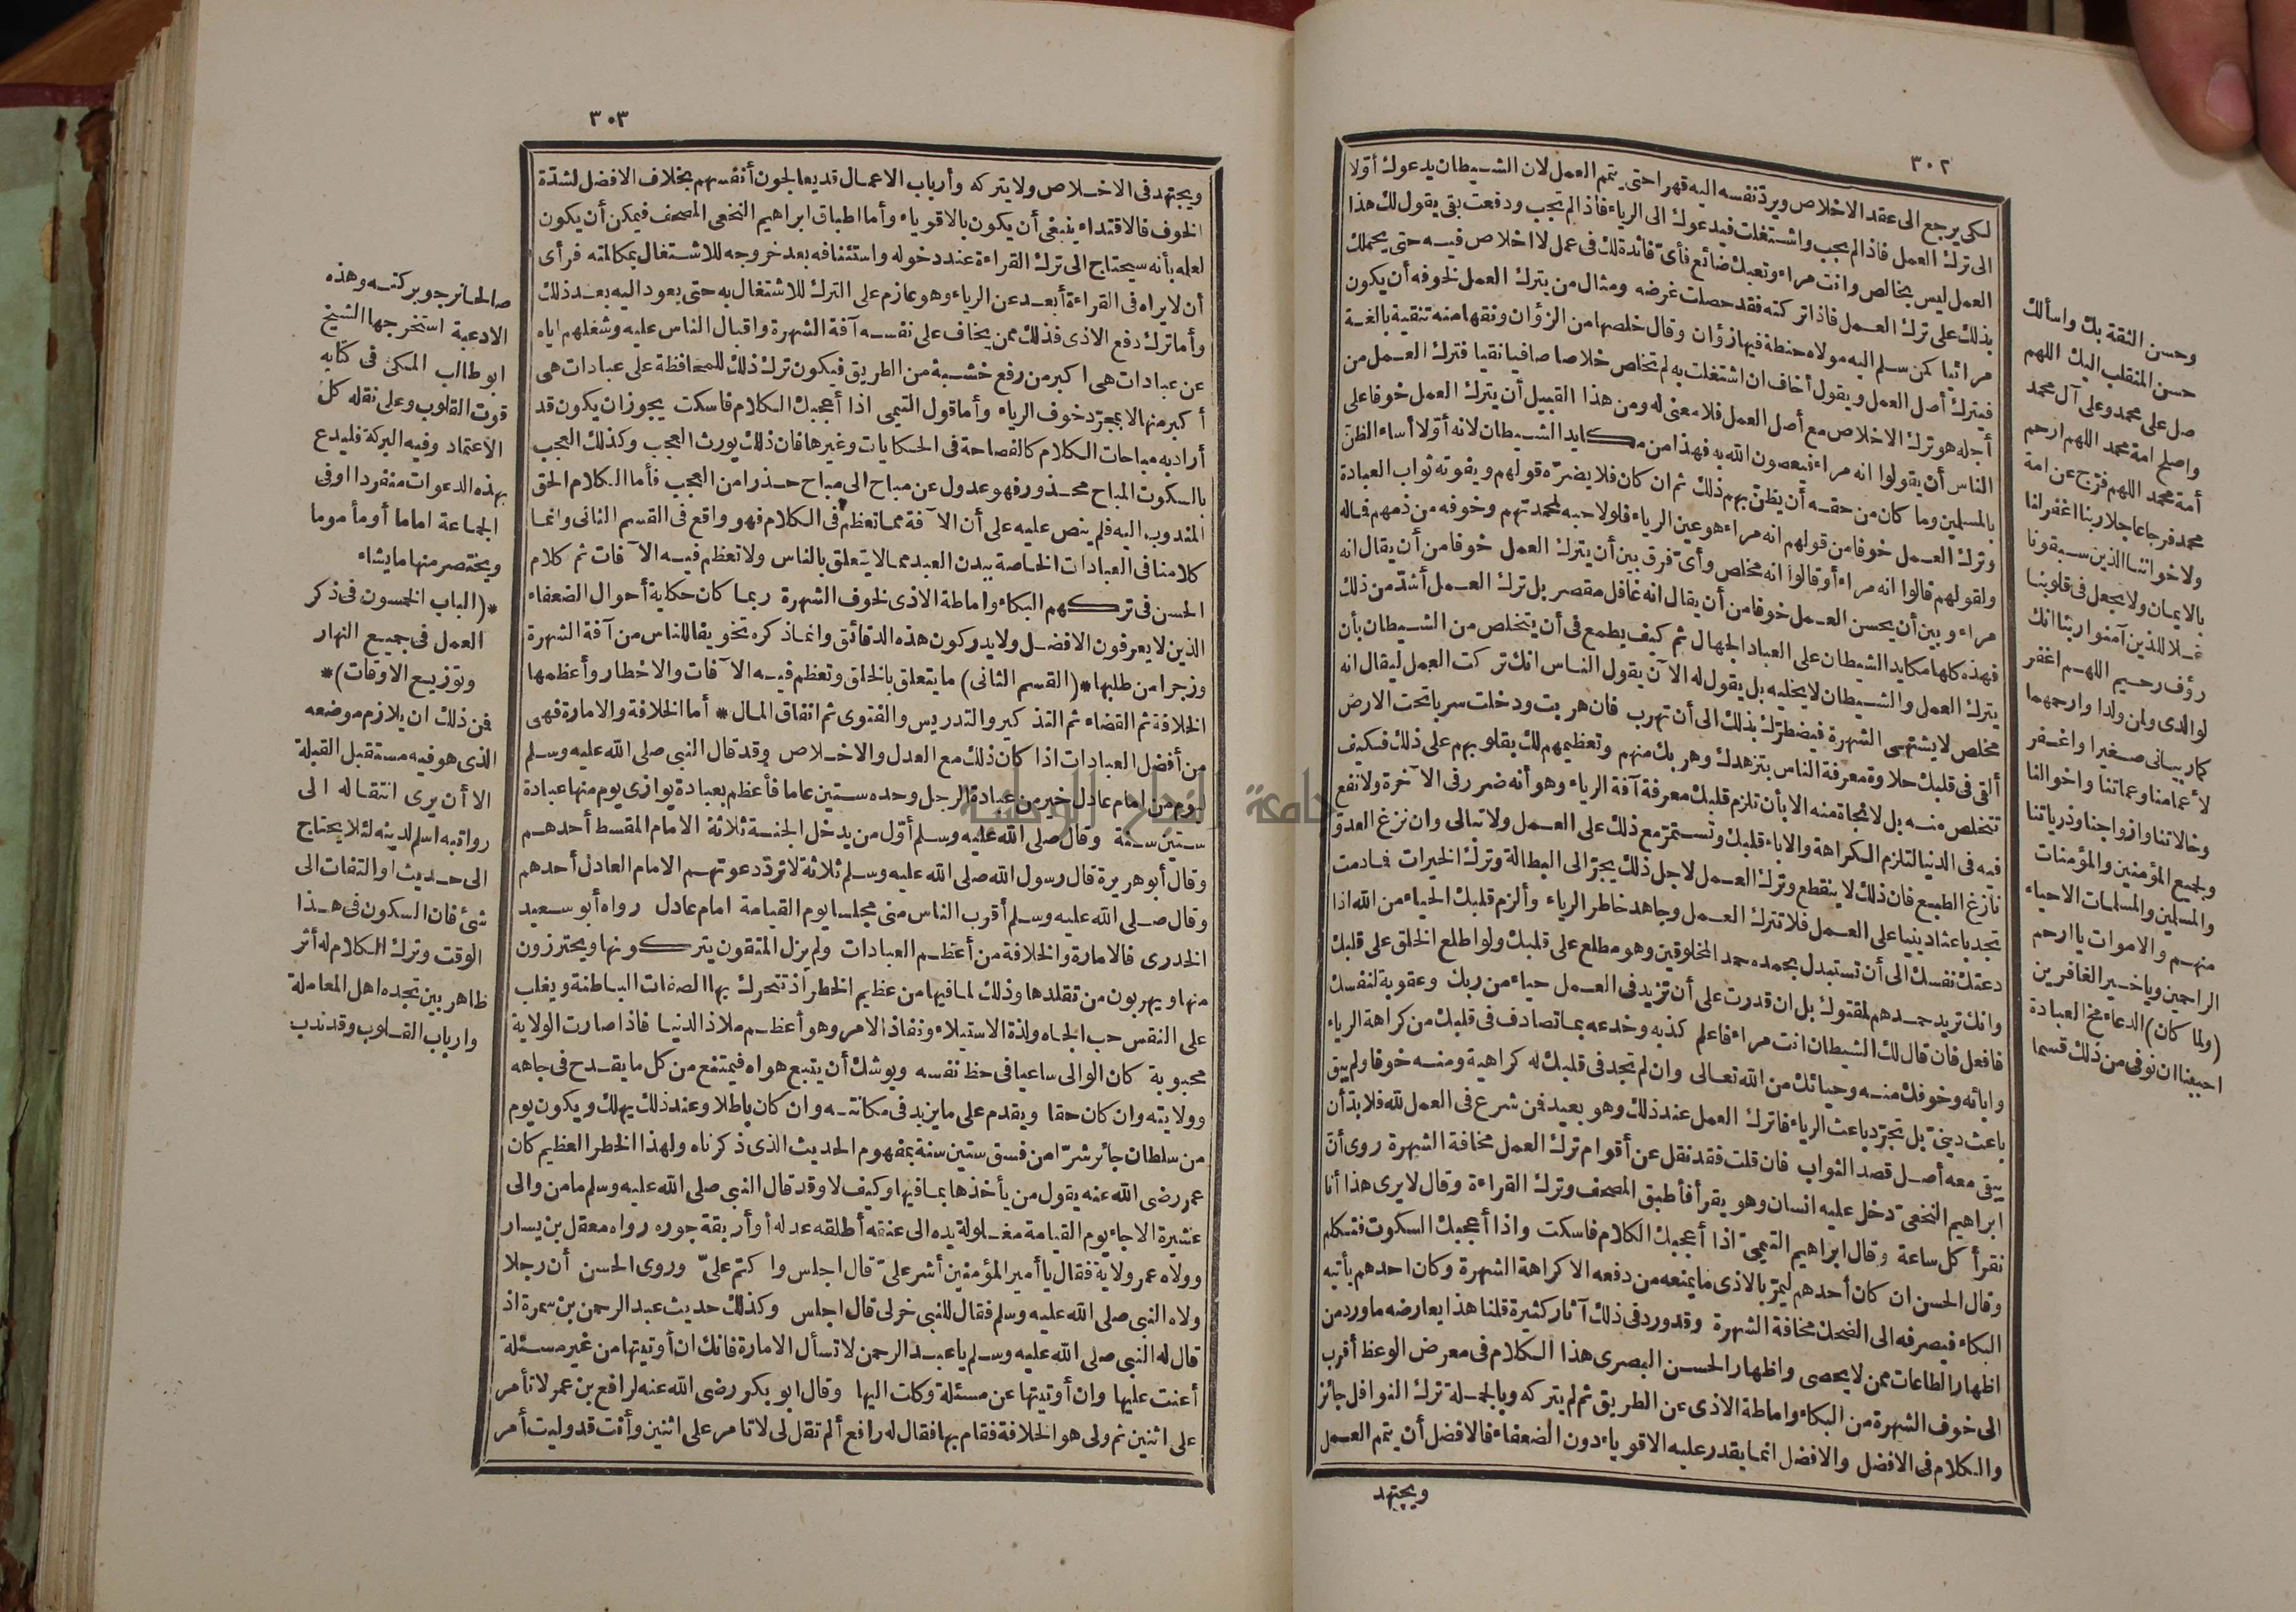 ٣٠٢
لكي يرجع الى عقد الاخلاص ويرد نفسه اليه قهرا حتى يتمم العمل لان الشيطان يدعوك أولا
الى ترك العمل فاذا لم يجب واشتغلت فيدعوك الى الرياء فاذا لم تجب ودفعت بقى يقول لك هذا
العمل ليس بخالص وانت مراء وتعبك ضائع فأى فائدة لك فى عمل لا اخلاص فيه حتى يحملك
بذلك على ترك العمل فاذا تركته فقد حصلت غرضه ومثال من يترك العمل لخوفه أن يكون
مرائيا كمن سلم اليه مولاه حنطة فيها زؤان وقال خلصها من الزؤان ونقها منه تنقية بالغة
فيترك أصل العمل ويقول أخاف ان اشتغلت به لم تخلص خلاصا صافيا نقيا فترك العمل من
أجله هو ترك الاخلاص مع أصل العمل فلا معنى له ومن هذا القبيل أن يترك العمل خوفا على
الناس أن يقولوا انه مراء فيعصون الله به فهذا من مكايد الشيطان لانه أولا أساء الظن
بالمسلمين وما كان من حقه أن يظن بهم ذلك ثم ان كان فلا يضره قولهم ويفوته ثواب العبادة
وترك العمل خوفا من قولهم انه مراء هو عين الرياء فلولا حبه لمحمدتهم وخوفه من ذمهم فماله
ولقولهم قالوا انه مراء أو قالوا انه مخلص وأى فرق بين أن يترك العمل خوفا من أن يقال انه
مراء وبين أن يحسن العمل خوفا من أن يقال انه غافل مقصر بل ترك العمل أشد من ذلك
فهذه كلها مكايد الشيطان على العباد الجهال ثم كيف يطمع فى أن يتخلص من الشيطان بأن
يترك العمل والشيطان لا يخليه بل يقول له الآن يقول الناس انك تركت العمل ليقال انه
مخلص لا يشتهى الشهرة فيضطرك بذلك الى أن تهرب فان هربت ودخلت سربا تحت الارض
ألقى فى قلبك حلاوة معرفة الناس بتزهدك وهربك منهم وتعظيمهم لك بقلوبهم على ذلك فكيف
تتخلص منه بل لا نجاة منه الا بأن تلزم قلبك معرفة آفة الرياء وهو أنه ضرر فى الآخرة ولا نفع
فيه فى الدنيا لتلزم الكراهة والاباء قلبك وتستمر مع ذلك على العمل ولا تبالى وان نزغ العدو
نازغ الطبع فان ذلك لا ينقطع وترك العمل لاجل ذلك يجر الى البطالة وترك الخيرات فما دمت
تجد باعثا دينيا على العمل فلا تترك العمل وجاهد خاطر الرياء وألزم قلبك الحياء من الله اذا
دعتك نفسك الى أن تستبدل بحمده حمد المخلوقين وهو مطلع على قلبك ولو اطلع الخلق على قلبك
وانك تريد حمدهم لمقتوك بل ان قدرت على أن تزيد فى العمل حياء من ربك وعقوبة لنفسك
فافعل فان قال لك الشيطان انت مراء فاعلم كذبه وخدعه بما تصادف فى قلبك من كراهة الرياء
وابائه وخوفك منه وحيائك من الله تعالى وان لم تجد فى قلبك له كراهية ومنه خوفا ولم يبق
باعث دينى بل تجرد باعث الرياء فاترك العمل عند ذلك وهو بعيد فمن شرع فى العمل لله فلا بد أن
يبقى معه أصل قصد الثواب فان قلت فقد نقل عن أقوام ترك العمل مخافة الشهرة روى أن
ابراهيم النخعى دخل عليه انسان وهو يقرأ فأطبق المصحف وترك القراءة وقال لا يرى هذا أنا
نقرأ كل ساعة وقال ابراهيم التيمى اذا أعجبك الكلام فاسكت واذا أعجبك السكوت فتكلم
وقال الحسن ان كان أحدهم ليمر بالاذى ما يمنعه من دفعه الا كراهة الشهرة وكان احدهم يأتيه
البكاء فيصرفه الى الضحك مخافة الشهرة وقد ورد فى ذلك آثار كثيرة قلنا هذا يعارضه ما ورد من
اظهار الطاعات ممن لا يحصى واظهار الحسن البصرى هذا الكلام فى معرض الوعظ أقرب
الى خوف الشهرة من البكاء واماطة الاذى عن الطريق ثم لم يتركه وبالجملة ترك النوافل جائز
والكلام فى الافضل والافضل انما يقدر عليه الاقوياء دون الضعفاء فالافضل أن يتمم العمل
ويجتهد
وحسن الثقة بك واسألك
حسن المنقلب اليك اللهم
صل على محمد وعلى آل محمد
واصلح امة محمد اللهم ارحم
أمة محمد اللهم فرج عن امة
محمد فرجا عاجلا ربنا اغفر لنا
ولاخواننا الذين سبقونا
بالايمان ولا تجعل فى قلوبنا
غلا للذين آمنوا ربنا انك
رؤف رحيم اللهم اغفر
لوالدى ولمن ولدا وارحمهما
كما ربيانى صغيرا واغفر
لأعمامنا وعماتنا واخوالنا
وخالاتنا وازواجنا وذرياتنا
ولجميع المؤمنين والمؤمنات
والمسلمين والمسلمات الاحياء
منهم والاموات يا ارحم
الراحمين ويا خير الغافرين
(ولما كان) الدعاء مخ العبادة
احببنا ان نوفى من ذلك قسما
٣٠٣
ويجتهد فى الاخلاص ولا يتركه وأرباب الاعمال قد يعالجون أنفسهم بخلاف الافضل لشدة
الخوف فالاقتداء ينبغى أن يكون بالاقوياء وأما اطباق ابراهيم النخعى المصحف فيمكن أن يكون
لعله بأنه سيحتاج الى ترك القراءة عند دخوله واستئنافه بعد خروجه للاشتغال بمكالمته فرأى
أن لا يراه فى القراءة أبعد عن الرياء وهو عازم على الترك للاشتغال به حتى يعود اليه بعد ذلك
وأما ترك دفع الاذى فذلك ممن يخاف على نفسه آفة الشهرة واقبال الناس عليه وشغلهم اياه
عن عبادات هى اكبر من رفع خشبة من الطريق فيكون ترك ذلك للمحافظة على عبادات هى
أكبر منها لا بمجرد خوف الرياء وأما قول التيمى اذا أعجبك الكلام فاسكت يجوز ان يكون قد
أراد به مباحات الكلام كالفصاحة فى الحكايات وغيرها فان ذلك يورث العجب وكذلك العجب
بالسكوت المباح محذور فهو عدول عن مباح الى مباح حذرا من العجب فأما الكلام الحق
المندوب اليه فلم ينص عليه على أن الآفة مما تعظم فى الكلام فهو واقع فى القسم الثانى وانما
كلامنا فى العبادات الخاصة ببدن العبد مما لا يتعلق بالناس ولا تعظم فيه الآفات ثم كلام
الحسن فى تركهم البكاء واماطة الاذى لخوف الشهرة ربما كان حكاية أحوال الضعفاء
الذين لا يعرفون الافضل ولا يدركون هذه الدقائق وانما ذكره تخويفا للناس من آفة الشهرة
وزجرا من طلبها *(القسم الثانى) ما يتعلق بالخلق وتعظم فيه الآفات والاخطار وأعظمها
الخلافة ثم القضاء ثم التذكير والتدريس والفتوى ثم انفاق المال * أما الخلافة والامارة فهى
من أفضل العبادات اذا كان ذلك مع العدل والاخلاص وقد قال النبى صلى الله عليه وسلم
ليوم من امام عادل خير من عبادة الرجل وحده ستين عاما فأعظم بعبادة يوازى يوم منها عبادة
ستين سنة وقال صلى الله عليه وسلم أول من يدخل الجنة ثلاثة الامام المقسط أحدهم
وقال أبو هريرة قال رسول الله صلى الله عليه وسلم ثلاثة لا ترد دعوتهم الامام العادل أحدهم
وقال صلى الله عليه وسلم أقرب الناس منى مجلسا يوم القيامة امام عادل رواه أبو سعيد
الخدرى فالامارة والخلافة من أعظم العبادات ولم يزل المتقون يتركونها ويحترزون
منها ويهربون من تقلدها وذلك لما فيها من عظيم الخطر اذ تتحرك بها الصفات الباطنة ويغلب
على النفس حب الجاه ولذة الاستيلاء ونفاذ الامر وهو أعظم ملاذ الدنيا فاذا صارت الولاية
محبوبة كان الوالى ساعيا فى حظ نفسه ويوشك أن يتبع هواه فيمتنع من كل ما يقدح فى جاهه
وولايته وان كان حقا ويقدم على ما يزيد فى مكانته وان كان باطلا وعند ذلك يهلك ويكون يوم
من سلطان جائر شرا من فسق ستين سنة بمفهوم الحديث الذى ذكرناه ولهذا الخطر العظيم كان
عمر رضى الله عنه يقول من يأخذها بما فيها وكيف لا وقد قال النبى صلى الله عليه وسلم ما من والى
عشيرة الا جاء يوم القيامة مغلولة يده الى عنقه أطلقه عدله أو أربقة جوره رواه معقل بن يسار
وولاه عمر ولاية فقال يا أمير المؤمنين أشر على قال اجلس واكتم على وروى الحسن أن رجلا
ولاه النبى صلى الله عليه وسلم فقال للنبى خر لى قال اجلس وكذلك حديث عبد الرحمن بن سمرة اذ
قال له النبى صلى الله عليه وسلم يا عبد الرحمن لا تسأل الامارة فانك ان أوتيتها من غير مسئلة
أعنت عليها وان أوتيتها عن مسئلة وكلت اليها وقال ابو بكر رضى الله عنه لرافع بن عمر لا تأمر
على اثنين ثم ولى هو الخلافة فقام بها فقال له رافع ألم تقل لى لا تامر على اثنين وأنت قد وليت أمر
صالحا نرجو بركته وهذه
الادعية استخرجها الشيخ
ابو طالب المكى فى كتابه
قوت القلوب وعلى نقله كل
الاعتماد وفيه البركة فليدع
بهذه الدعوات منفردا اوفى
الجماعة اماما أو مأموما
ويختصر منها ما يشاء
*(الباب الخمسون فى ذكر
العمل فى جميع النهار
وتوزيع الاوقات)*
فمن ذلك ان يلازم موضعه
الذى هو فيه مستقبل القبلة
الا أن يرى انتقاله الى
زاويته اسلم لدينه لئلا يحتاج
الى حديث او التفات الى
شئ فان السكون فى هذا
الوقت وترك الكلام له أثر
ظاهر بين تجده اهل المعاملة
وارباب القلوب وقد ندب
جامعة النجاح الوطنية